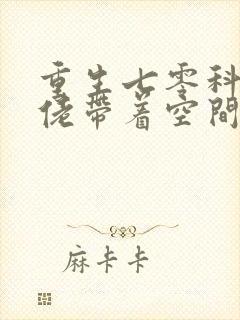 重生七零科
佬帶著空間
麻卡卡